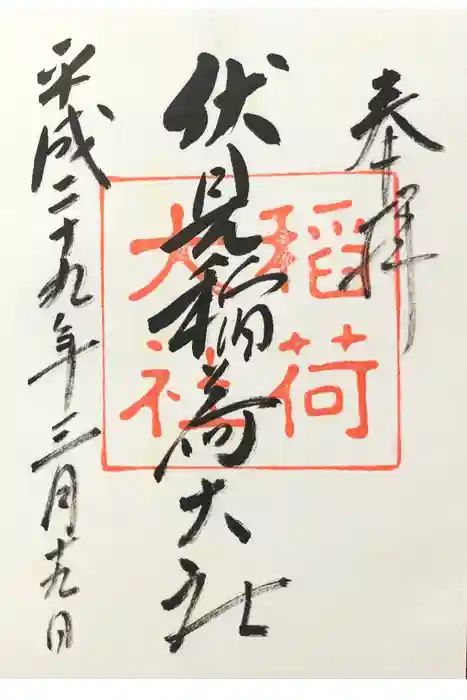 奉拝
伏見稲荷大社
平成二十九年三月十九日
稲荷
大社